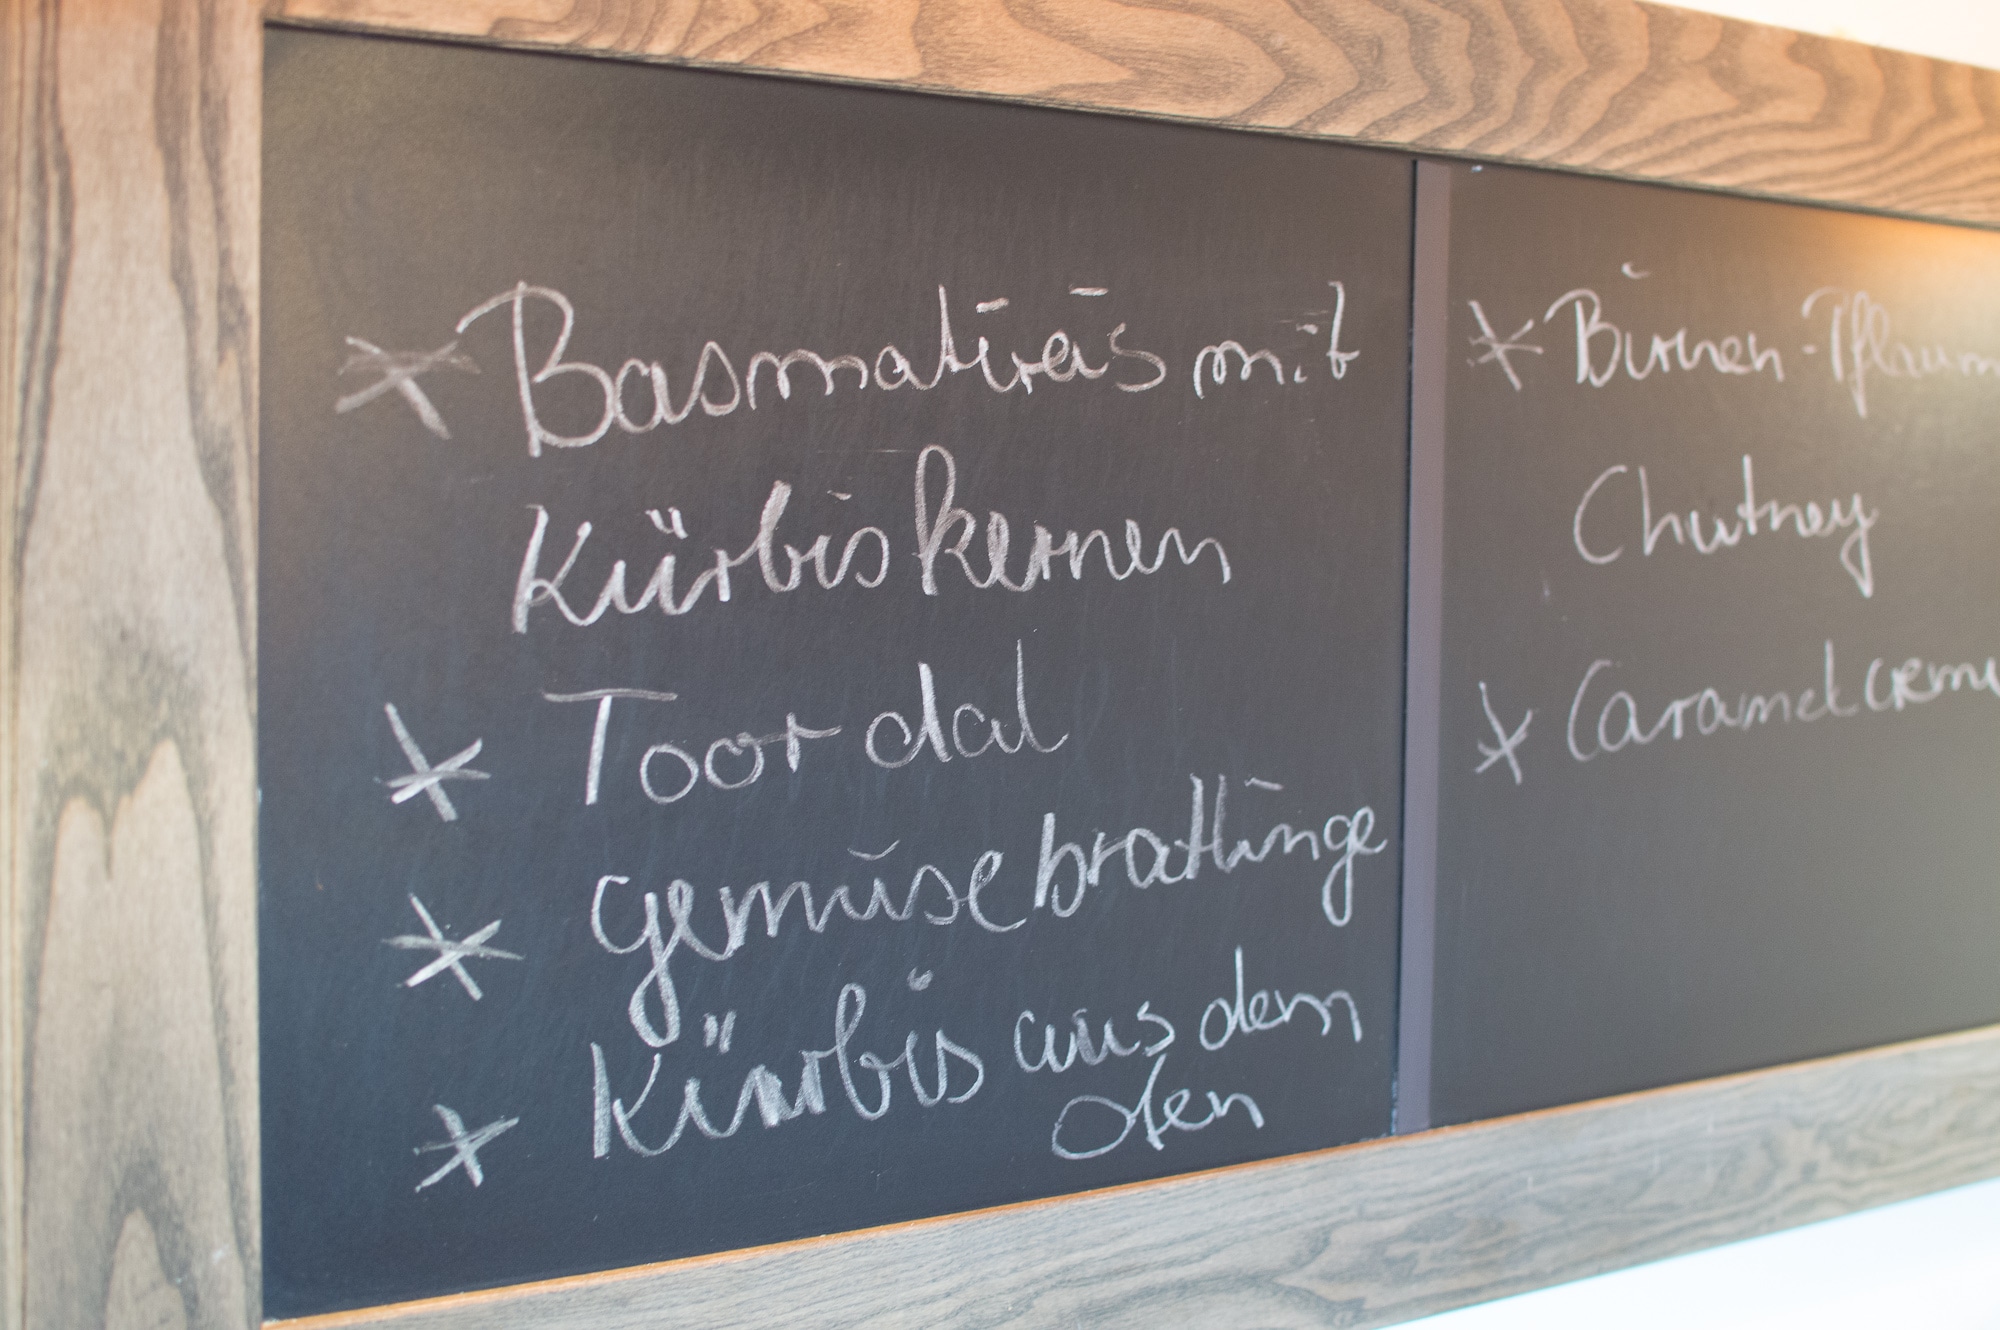 * Basmatireis mit
Kürbiskernen
* Toor dal
* Gemüsebratlinge
* Kürbis aus dem
Ofen
* Birnen-Pflaum
Chutney
* Caramelcreme